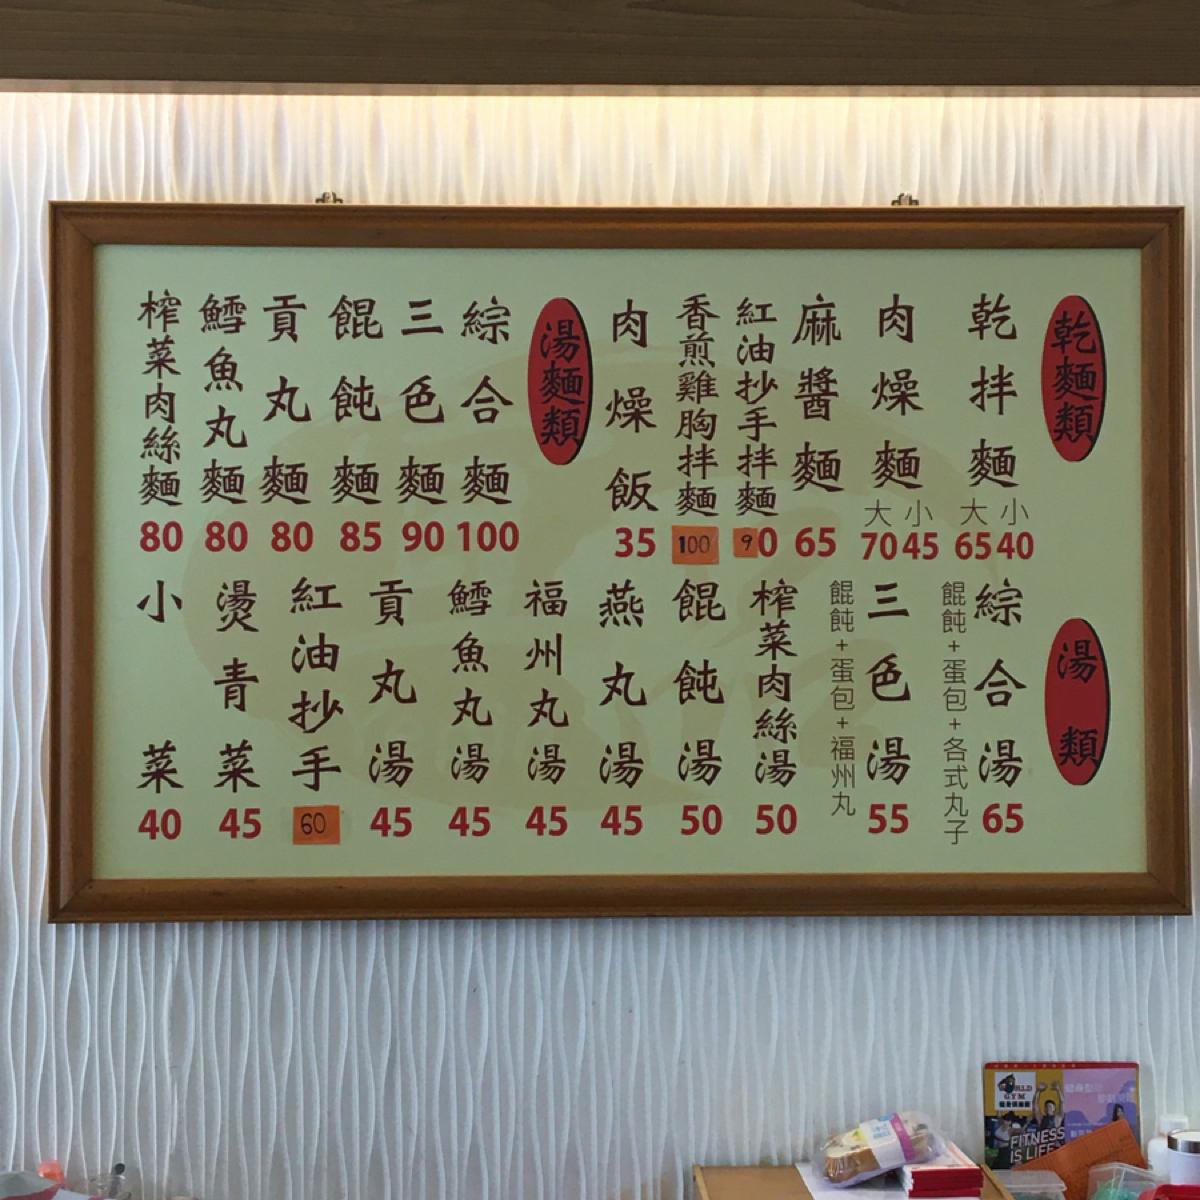 乾麵類
乾拌麵 大65 小40
肉燥麵 大70 小45
麻醬麵 65
紅油抄手拌麵 90
香煎雞胸拌麵 100
肉燥飯 35
湯麵類
綜合麵 100
三色麵 90
餛飩麵 85
貢丸麵 80
鱈魚丸麵 80
榨菜肉絲麵 80
湯類
綜合湯 65
餛飩+蛋包+各式丸子
三色湯 55
餛飩+蛋包+福州丸
榨菜肉絲湯 50
餛飩湯 50
燕丸湯 45
福州丸湯 45
鱈魚丸湯 45
貢丸湯 45
紅油抄手 60
燙青菜 45
小菜 40
WORLD
GYM
FITNESS
IS LIFE